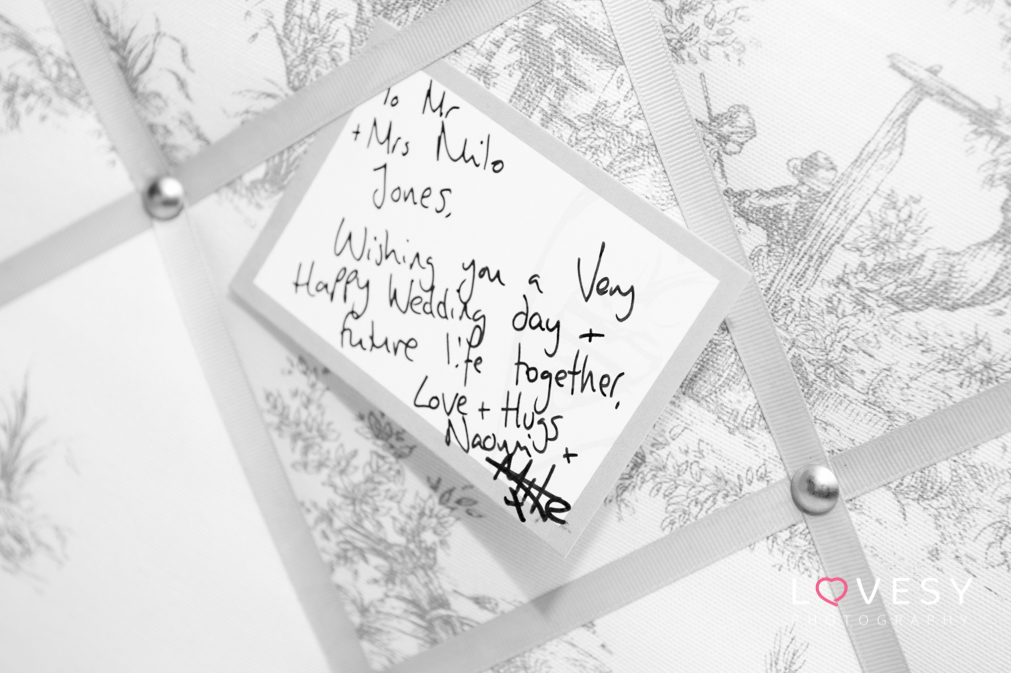 To Mr
+ Mrs Milo
Jones,
Wishing you a Very
Happy Wedding day +
future life together,
Love + Hugs
Naomi +
LOVESY
PHOTOGRAPHY